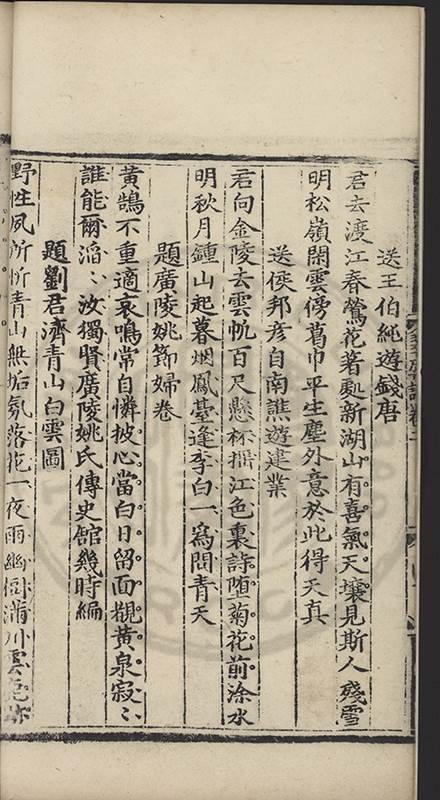 送王伯純遊錢唐
君去渡江春鶯花著處新湖山有喜氣天壤見斯人殘雪
明松嶺閒雲傍葛巾平生塵外意於此得天真
送侯邦彦自南譙遊建業
君向金陵去雲帆百尺懸杯擕江色裏詩墮菊花前淦水
明秋月鍾山起暮烟鳳臺逢李白一爲問青天
題廣陵姚節婦卷
黃鵠不重適哀鳴常自憐披心當白日留面覩黃泉寂〻
誰能爾滔〻汝獨賢廣陵姚氏傳史舘幾時編
題劉君濟青山白雲圖
野性夙所忻青山無垢氛落花一夜雨幽樹滿川雲